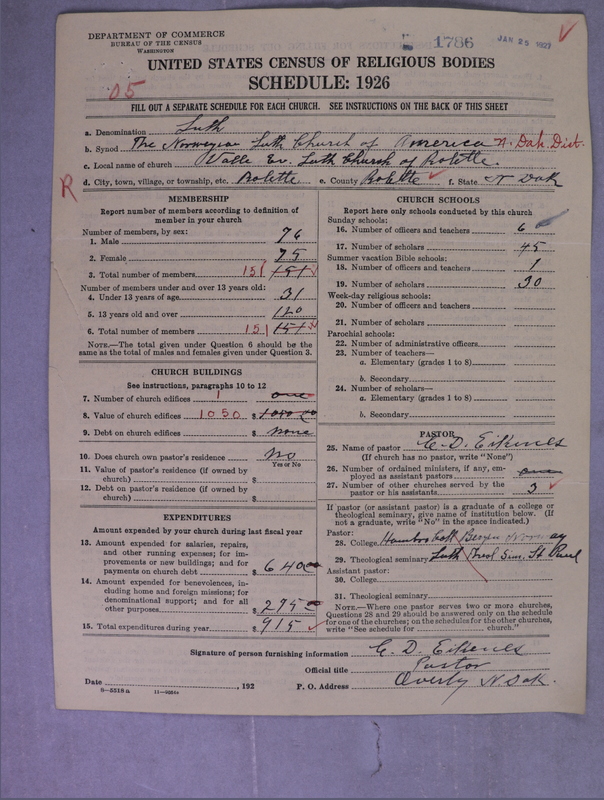 DEPARTMENT OF COMMERCE
BUREAU OF THE CENSUS
WASHINGTON
1786
JAN 25 1927
UNITED STATES CENSUS OF RELIGIOUS BODIES
SCHEDULE: 1926
05
FILL OUT A SEPARATE SCHEDULE FOR EACH CHURCH. SEE INSTRUCTIONS ON THE BACK OF THIS SHEET
a. Denomination Luth
b. Synod The Norwegian Luth Church of America N. Dak. Dist.
c. Local name of church Valle Ev. Luth Church of Rolette.
R
d. City, town, village, or township, etc. Rolette e. County Rolette f. State N Dak
MEMBERSHIP
Report number of members according to definition of member in your church
Number of members, by sex:
1. Male 76
2. Female 75
3. Total number of members 151 151
Number of members under and over 13 years old:
4. Under 13 years of age 31
5. 13 years old and over 120
6. Total number of members 151 151
NOTE.—The total given under Question 6 should be
same as the total of males and females given under Question 3.
CHURCH BUILDINGS
See instructions, paragraphs 10 to 12
7. Number of church edifices 1 one
8. Value of church edifices 1050 $
9. Debt on church edifices $ none
10. Does church own pastor's residence? no
Yes or No
11. Value of pastor's residence (if owned by
church) $
12. Debt on pastor's residence (if owned by
church) $
EXPENDITURES
Amount expended by church during last fiscal year
13. Amount expended for salaries, repairs,
and other running expenses; for im-
provements or new buildings; and for
payments on church debt $ 640 00
14. Amount expended for benevolences, in-
cluding home and foreign missions; for
denominational support; and for all
other purposes $ 275
15. Total expenditures during year $ 915
CHURCH SCHOOLS
Report here only schools conducted by this church
Sunday schools:
16. Number of officers and teachers 6
17. Number of scholars 45
Summer vacation Bible schools:
18. Number of officers and teachers 1
19. Number of scholars 30
Week-day religious schools:
20. Number of officers and teachers
21. Number of scholars
Parochial schools:
22. Number of administrative officers
23. Number of teachers—
a. Elementary (grades 1 to 8)
b. Secondary
24. Number of scholars—
a. Elementary (grades 1 to 8)
b. Secondary
PASTOR
25. Name of pastor C. D. Eikenes
(If church has no pastor, write "None")
26. Number of ordained ministers, if any, em-
ployed as assistant pastors
27. Number of other churches served by the
pastor or his assistants 3
If pastor (or assistant pastor) is a graduate of a college or
theological seminary, give name of institution below. (If
not a graduate, write "No" in the space indicated.)
Pastor:
28. College Bergen Norway
29. Theological seminary Luth Theol Sem. St Paul
Assistant pastor:
30. College
31. Theological seminary
NOTE.—Where one pastor serves two or more churches,
Questions 28 and 29 should be answered only on the schedule
for one of the churches; on the schedules for the other churches,
write "See schedule for church."
Signature of person furnishing information C. D. Eikenes
Official title Pastor
Date , 192 P. O. Address Overly N. Dak.
8—5518 a